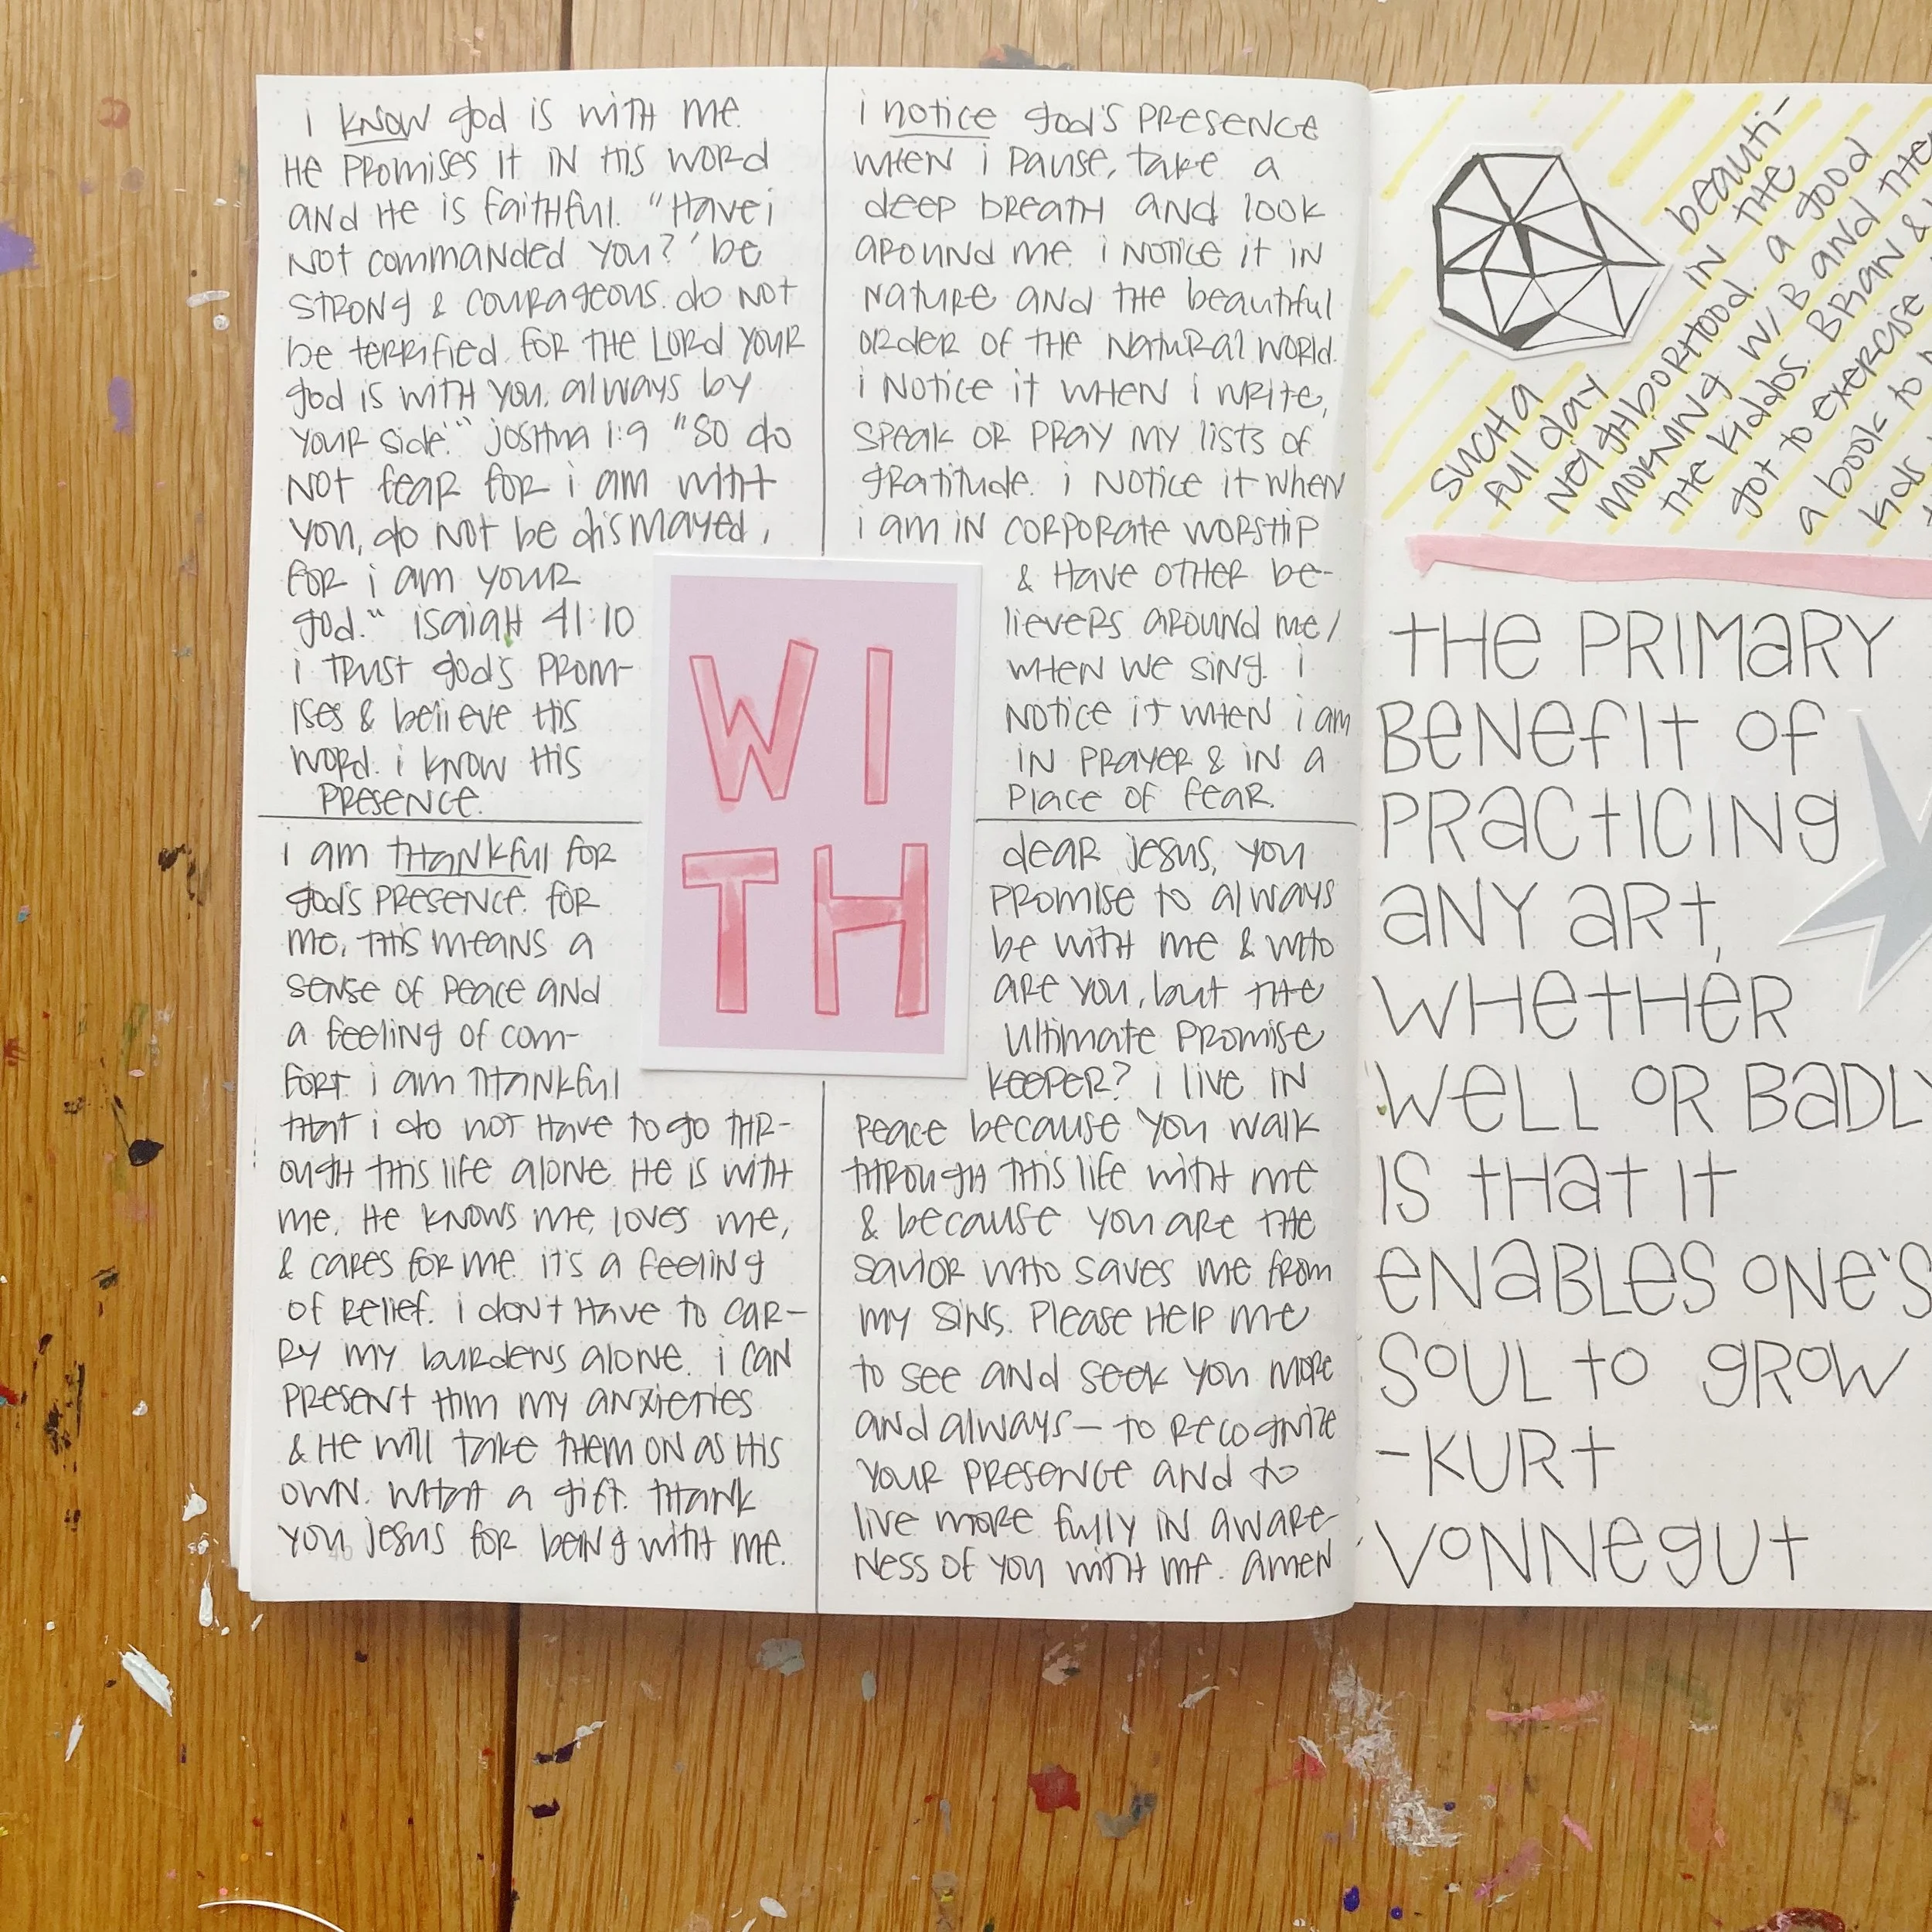 i know god is with me.
He promises it in His word
and He is faithful. "Have i
not commanded you? 'be
strong & courageous. do not
be terrified for the Lord your
god is with you, always by
your side.'" joshua 1:9 "So do
not fear for i am with
you, do not be dismayed,
for i am your
god." isaiah 41:10
i trust god's prom-
ises & believe His
word. i know His
presence.
i notice god's presence
when i pause, take a
deep breath and look
around me. i notice it in
nature and the beautiful
order of the natural world.
i notice it when i write,
speak or pray my lists of
gratitude. i notice it when
i am in corporate worship
& have other be-
lievers around me/
when we sing. i
notice it when i am
in prayer & in a
place of fear.
WI
TH
i am thankful for
god's presence. for
me, this means a
sense of peace and
a feeling of com-
fort. i am thankful
that i do not have to go thr-
ough this life alone. He is with
me. He knows me, loves me,
& cares for me. it's a feeling
of relief. i don't have to car-
ry my burdens alone. i can
present Him my anxieties
& He will take them on as His
own. what a gift. thank
you jesus for being with me.
40
dear jesus, you
promise to always
be with me & who
are you, but the
ultimate promise
keeper? i live in
peace because you walk
through this life with me
& because you are the
savior who saves me from
my sins. please help me
to see and seek you more
and always— to recognize
your presence and to
live more fully in aware-
ness of you with me. amen
such a beauti-
ful day in the
neighborhood. a good
morning w/ B and the
the kiddos. Brian &
got to exercise
a book to
kids
the primary
benefit of
practicing
any art,
whether
well or badly
is that it
enables one's
soul to grow
-Kurt
Vonnegut